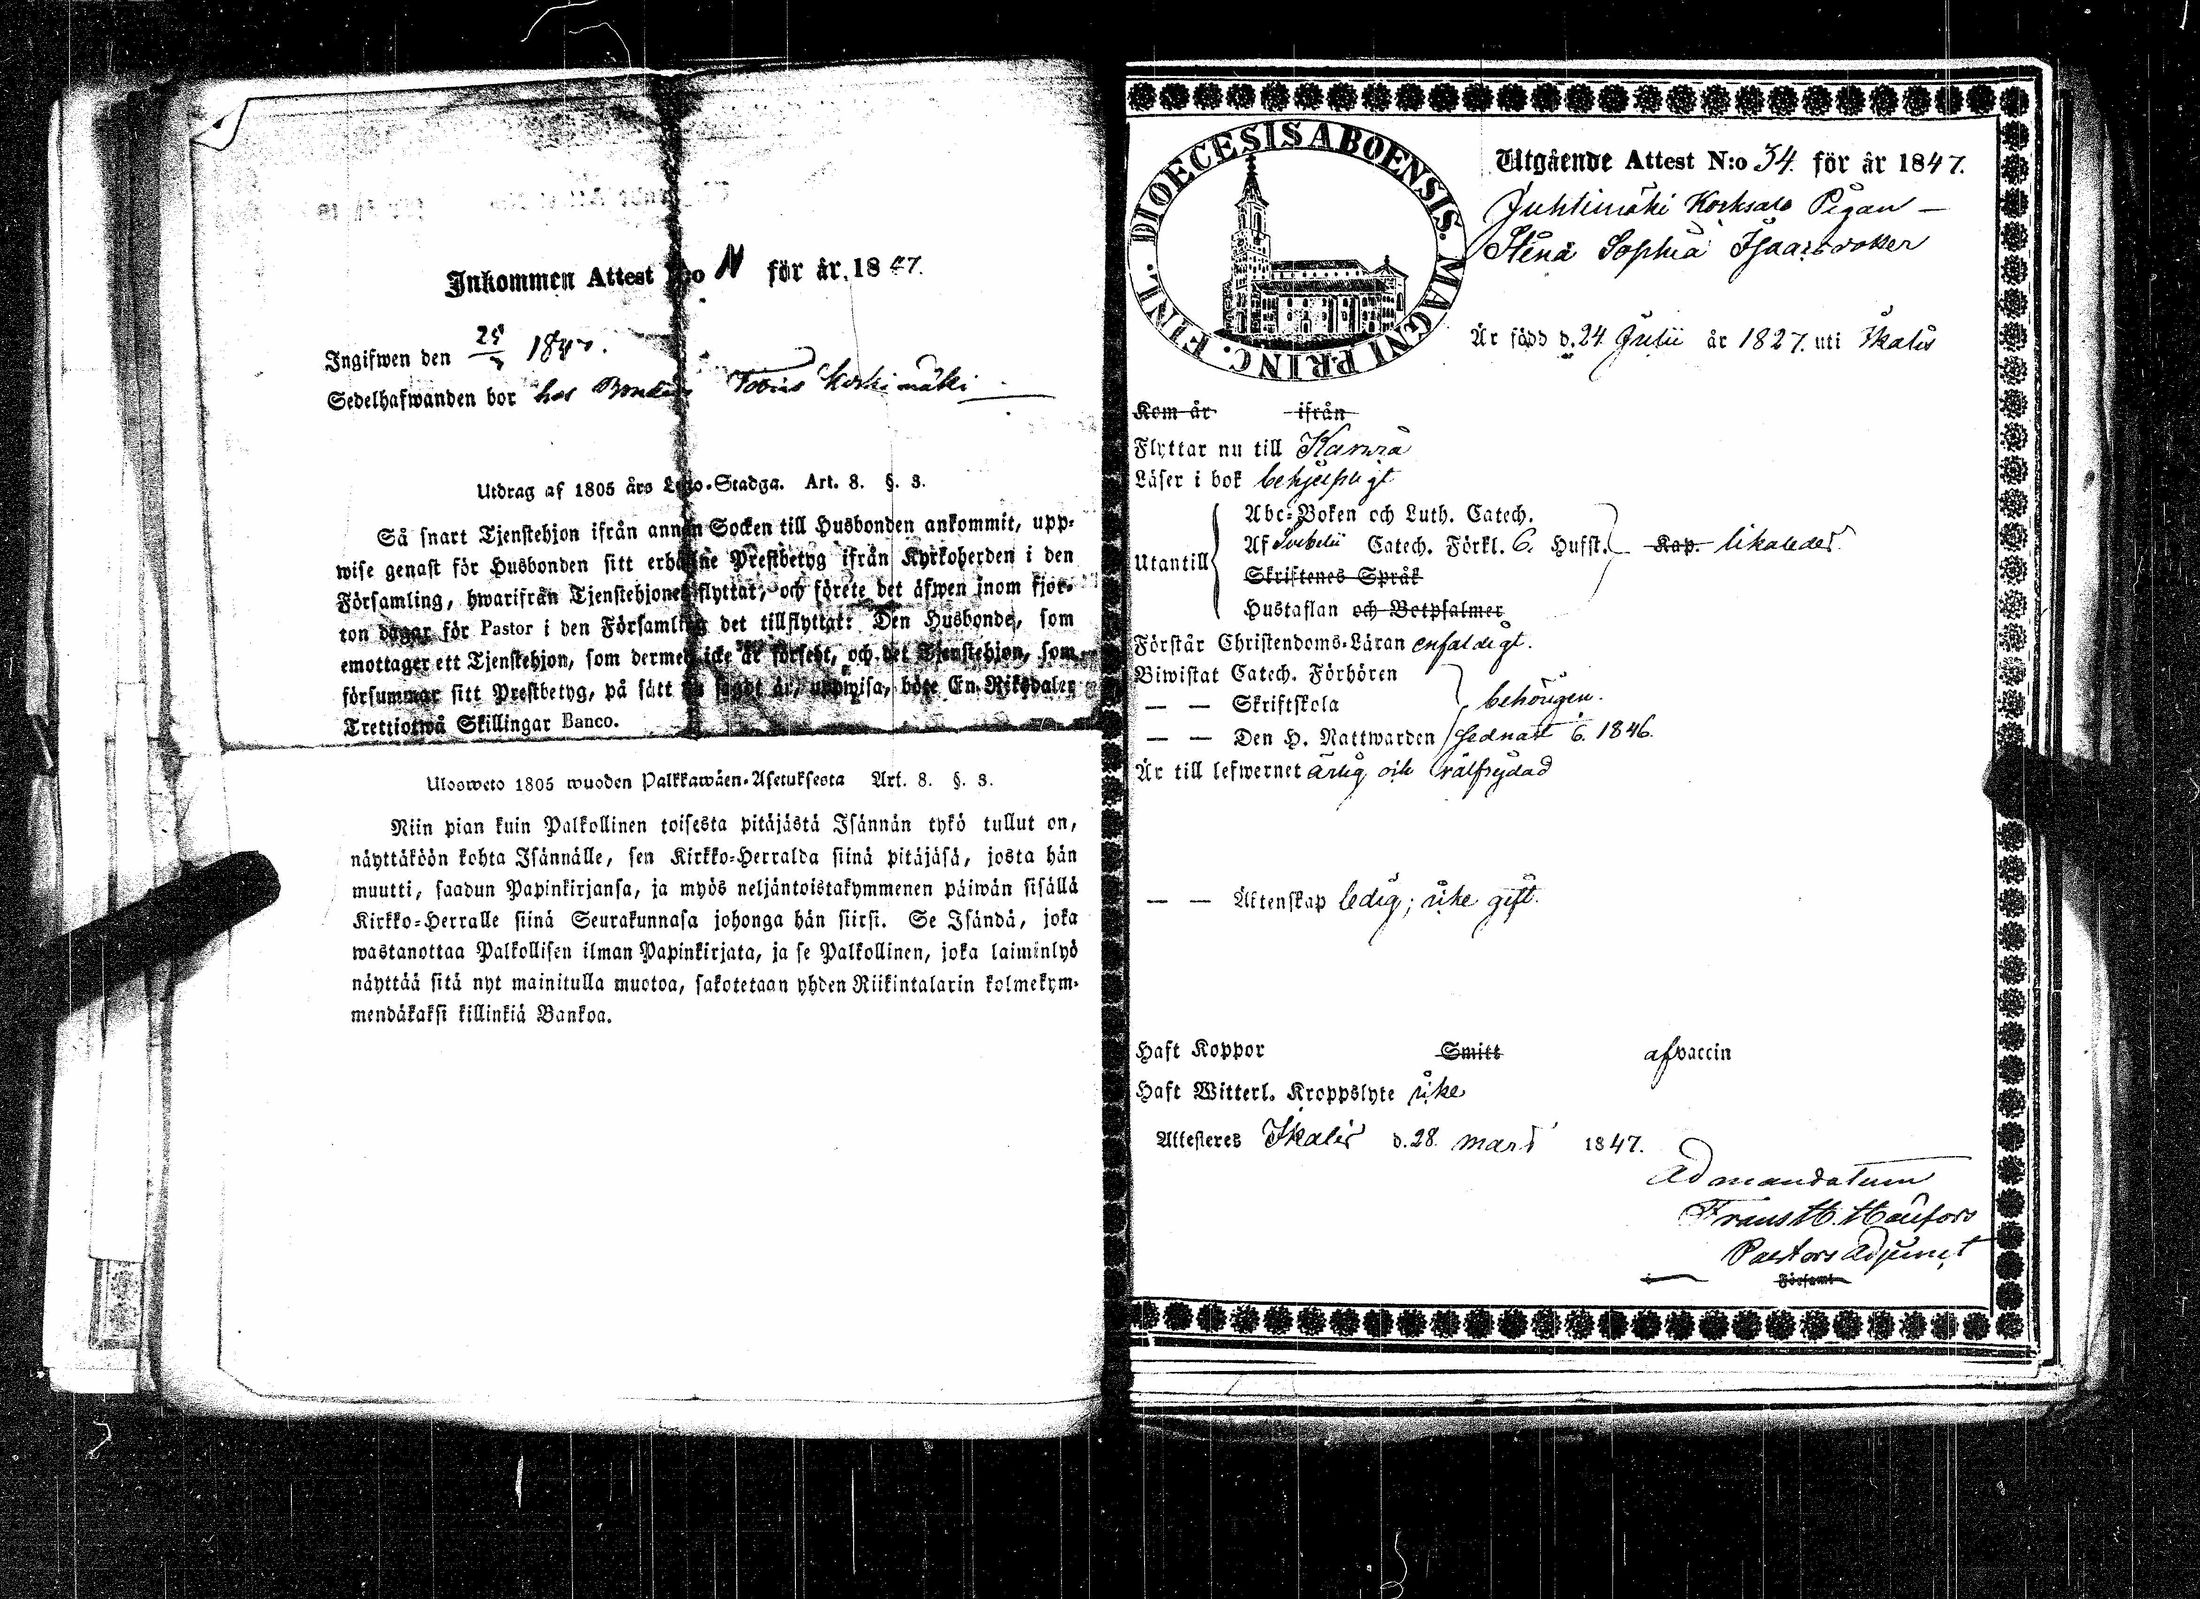 Inkommen Attest N:o N för år 1847.
Ingifwen den 25/7 1847.
Sedelhafwanden bor hos Bonden Tobias Koskimäki
Utdrag af 1805 års Lego-Stadga. Art. 8. §. 3.
Så snart Tjenstehjon ifrån annan Socken till Husbonden ankommit, upp-
wise genast för Husbonden sitt erhållne Prestbetyg ifrån Kyrkoherden i den
Församling, hwarifrån Tjenstehjonet flyttat, och förete det äfwen inom fjor-
ton dagar för Pastor i den Församling det tillflyttat: Den Husbonde, som
emottager ett Tjenstehjon, som dermed icke är försedt, och det Tjenstehjon, som
försummar sitt Prestbetyg, på sätt nu sagdt är, uppwisa, böte En Riksdaler
Trettiotwå Skillingar Banco.
Ulosweto 1805 wuoden Palkkawäen-Asetuksesta Art. 8. §. 3.
Niin pian kuin Palkollinen toisesta pitäjästä Isännän tykö tullut on,
näyttäköön kohta Isännälle, sen Kirkko-Herralda siinä pitäjäsä, josta hän
muutti, saadun Papinkirjansa, ja myös neljäntoistakymmenen päiwän sisällä
Kirkko-Herralle siinä Seurakunnasa johonga hän siirsi. Se Isändä, joka
wastanottaa Palkollisen ilman Papinkirjata, ja se Palkollinen, joka laiminlyö
näyttää sitä nyt mainitulla muotoa, sakotetaan yhden Riikintalarin kolmekym-
mendäkaksi killinkiä Bankoa.
DIOECESIS ABOENSIS. MAGNI PRINC. FINL.
Utgående Attest N:o 34. för år 1847.
Juhtimäki Korksalo Pigan –
Stina Sophia Isaacsdotter
Är född d. 24 Julii år 1827. uti Ikalis
Kom år ifrån
Flyttar nu till Karvia
Läser i bok behjelpligt
Abc-Boken och Luth. Catech.
Utantill Af Svebelii Catech. Förkl. 6. Hufst. Kap. likaledes.
Skriftenes Språk
Hustaflan och Botpsalmer
Förstår Christendoms-Läran enfaldigt.
Biwistat Catech. Förhören
— — Skriftskola behörigen.
— — Den H. Nattwarden sednast 6. 1846.
Är till lefwernet ärlig och välfrejdad
— — Äktenskap ledig; icke gift.
Haft Koppor Smitt af vaccin
Haft Witterl. Kroppslyte icke
Attesteres Ikalis d. 28 mars 1847.
Ad mandatum
Frans H.
Pastors Adjunct
i Församl.